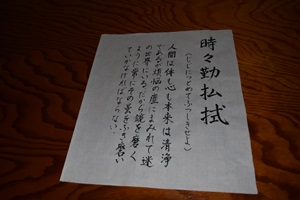 時々勤払拭
(じじにつとめてふっしきせよ)
人間は体も心も本来は清浄
であるが煩悩の塵にまみれて迷
の世界にいる。だから鏡を磨く
ように常にその塵をふき磨い
ていかなければならない